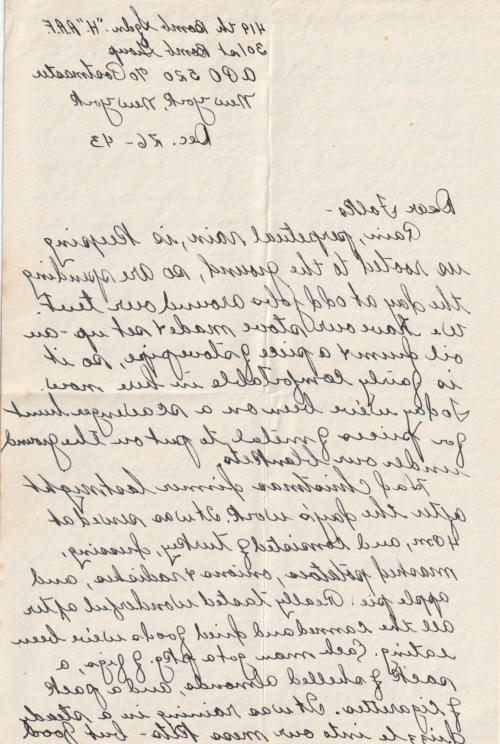 419th Bomb Sqdn. "H" A.A.F.
301st Bomb Group
APO 520 % Postmaster
New York, New York
Dec. 26 - 43
Dear Folks -
Rain, perpetual rain, is keeping
us rooted to the ground, so are spending
the day at odd jobs around our tent.
We have our stove made & set up - an
oil drum & a piece of stovepipe, so it
is fairly comfortable in here now.
Today we've been on a scavenger hunt
for pieces of metal to put on the ground
under our blankets.
Had Christmas dinner last night
after the day's work. It was served at
4 pm, and consisted of turkey, dressing,
mashed potatoes, onions & radishes, and
apple pie. Really tasted wonderful after
all the canned and dried goods we've been
eating. Each man got a pkg. of figs, a
pack of shelled almonds, and a pack
of cigarettes. It was raining in a steady
drizzle into our mess kits - but good